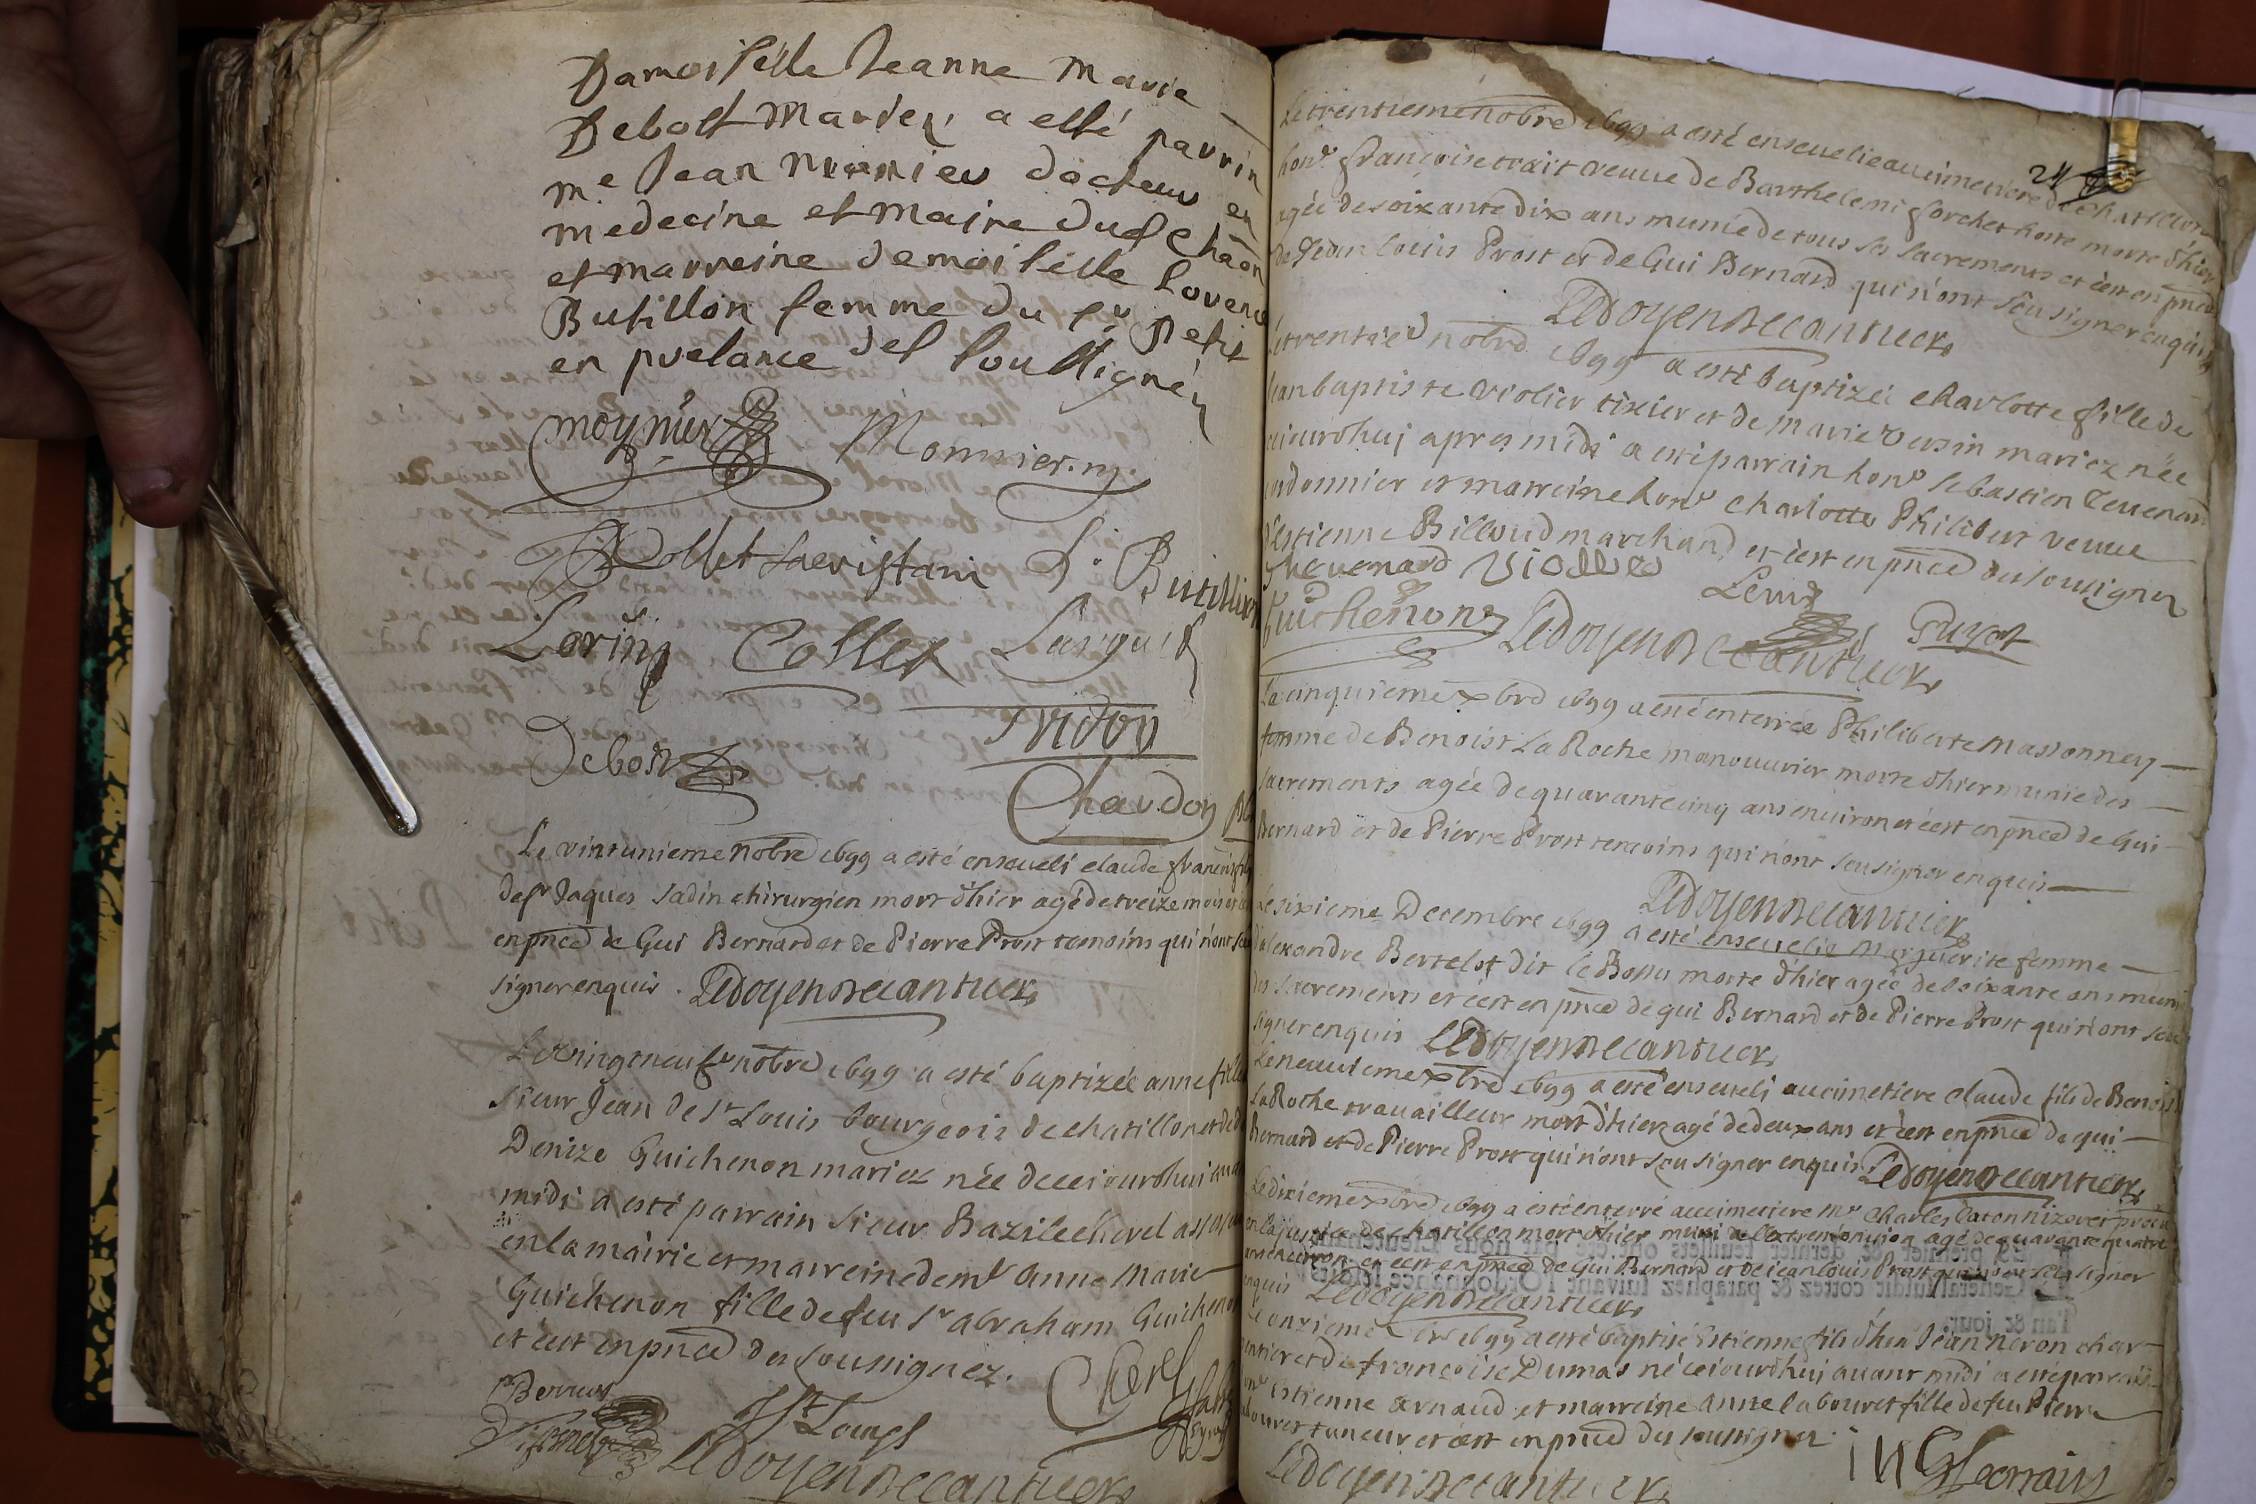 Damoiselle Jeanne Marie
Debost Mariez, a esté parrin
me Jean monnier docteur en
medecine et maire dud chaôn
et marreine demoiselle Lorence
Butillon femme du sr Petit
en presance des soussignéz
moynier Monnier m.
Rollet sacristain L. Butillion
Lorin Collet
Debost Tridon
Chardon
Le vintunieme nobre 1699 a esté enseveli claude francois fils
de sr Jaques Sadin chirurgien mort d'hier agé de treize mois et c'est
en pnce de Gui Bernard et de Pierre Prost temoins qui n'ont sceu
signer enquis. Ledoyen de cantuer
Le vingtneufe nobre 1699 a esté baptizée anne fille
sieur Jean de St Louis bourgeois de chatillon et de d
Denize Guichenon mariez née de cejourdhui avant
midi a esté parrain sieur Bazile cherel assesseur
en la mairie et marreine demle Anne Marie
Guichenon fille de feu sr abraham Guichenon
et c'est en pnce des soussignez.
Cherel
J St Louys
Ledoyen de cantuer
24
Le trentieme nobre 1699 a esté ensevelie au cimetiere de chatillon
honn francoise trait veuve de Barthelemi forchet hoste morte d'hier
agée de soixante dix ans munie de tous ses sacrements et c'est en pnce
de Jean Louis Prost et de Gui Bernard qui n'ont sceu signer enquis
Ledoyen de cantuer
Le trentied nobre 1699 a esté baptizée charlotte fille de
Jean baptiste violier tixier et de marie versin mariez née
cejourdhuj apres midi a esté parrain honr sebastien Tevenard
cordonnier et marreine honr charlotte Philibert veuve
d'estienne Billoud marchand et c'est en pnce des sousignez
Thevenard Viollie
Guichenon Ledoyen de cantuer Guyot
Le cinquieme xbre 1699 a esté enterrée Philiberte massonney
femme de Benoist La Roche manouvrier morte d'hier munie des
sacrements agée de quarantecinq ans environ et c'est en pnce de Gui
Bernard et de Pierre Prost temoins qui n'ont sceu signer enquis
Ledoyen de cantuer
Le sixieme Decembre 1699 a esté ensevelie Marguerite femme
d'alexandre Bertelot dit le Bossu morte d'hier agée de soixante ans munie
des sacrements et c'est en pnce de gui Bernard et de Pierre Prost qui n'ont sceu
signer enquis Ledoyen de cantuer
Le neuvieme xbre 1699 a esté enseveli au cimetiere claude fils de Benoist
La Roche travailleur mort d'hier agé de deux ans et c'est en pnce de gui
Bernard et de Pierre Prost qui n'ont sceu signer enquis Ledoyen de cantuer
Le dixieme xbre 1699 a esté enterré au cimetiere Mr charles
en la justice de chatillon mort d'hier muni de l'extremonction agé de quarante quatre
ans environ et c'est en pnce de gui Bernard et de jean louis Prost qui n'ont sceu signer
enquis Ledoyen de cantuer
Le onzieme xbre 1699 a esté baptisé Estienne fils d'hon Jean neron char
pentier et de francoise Dumas né cejourdhui avant midi a esté parrain
hon Estienne arnaud et marreine anne labouret fille de feu Pierre
labouret taneur et c'est en pnce des soussignez.
Ledoyen de cantuer